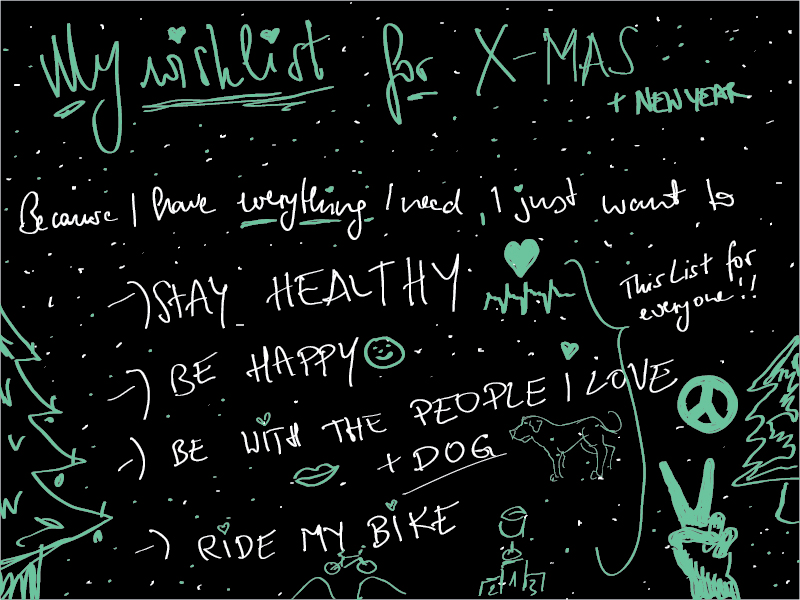 My wishlist for X-MAS
+ NEW YEAR
Because I have everything I need, I just want to
→ STAY HEALTHY
This List for
everyone!!
→ BE HAPPY
→ BE WITH THE PEOPLE I LOVE
+ DOG
→ RIDE MY BIKE
2 1 3